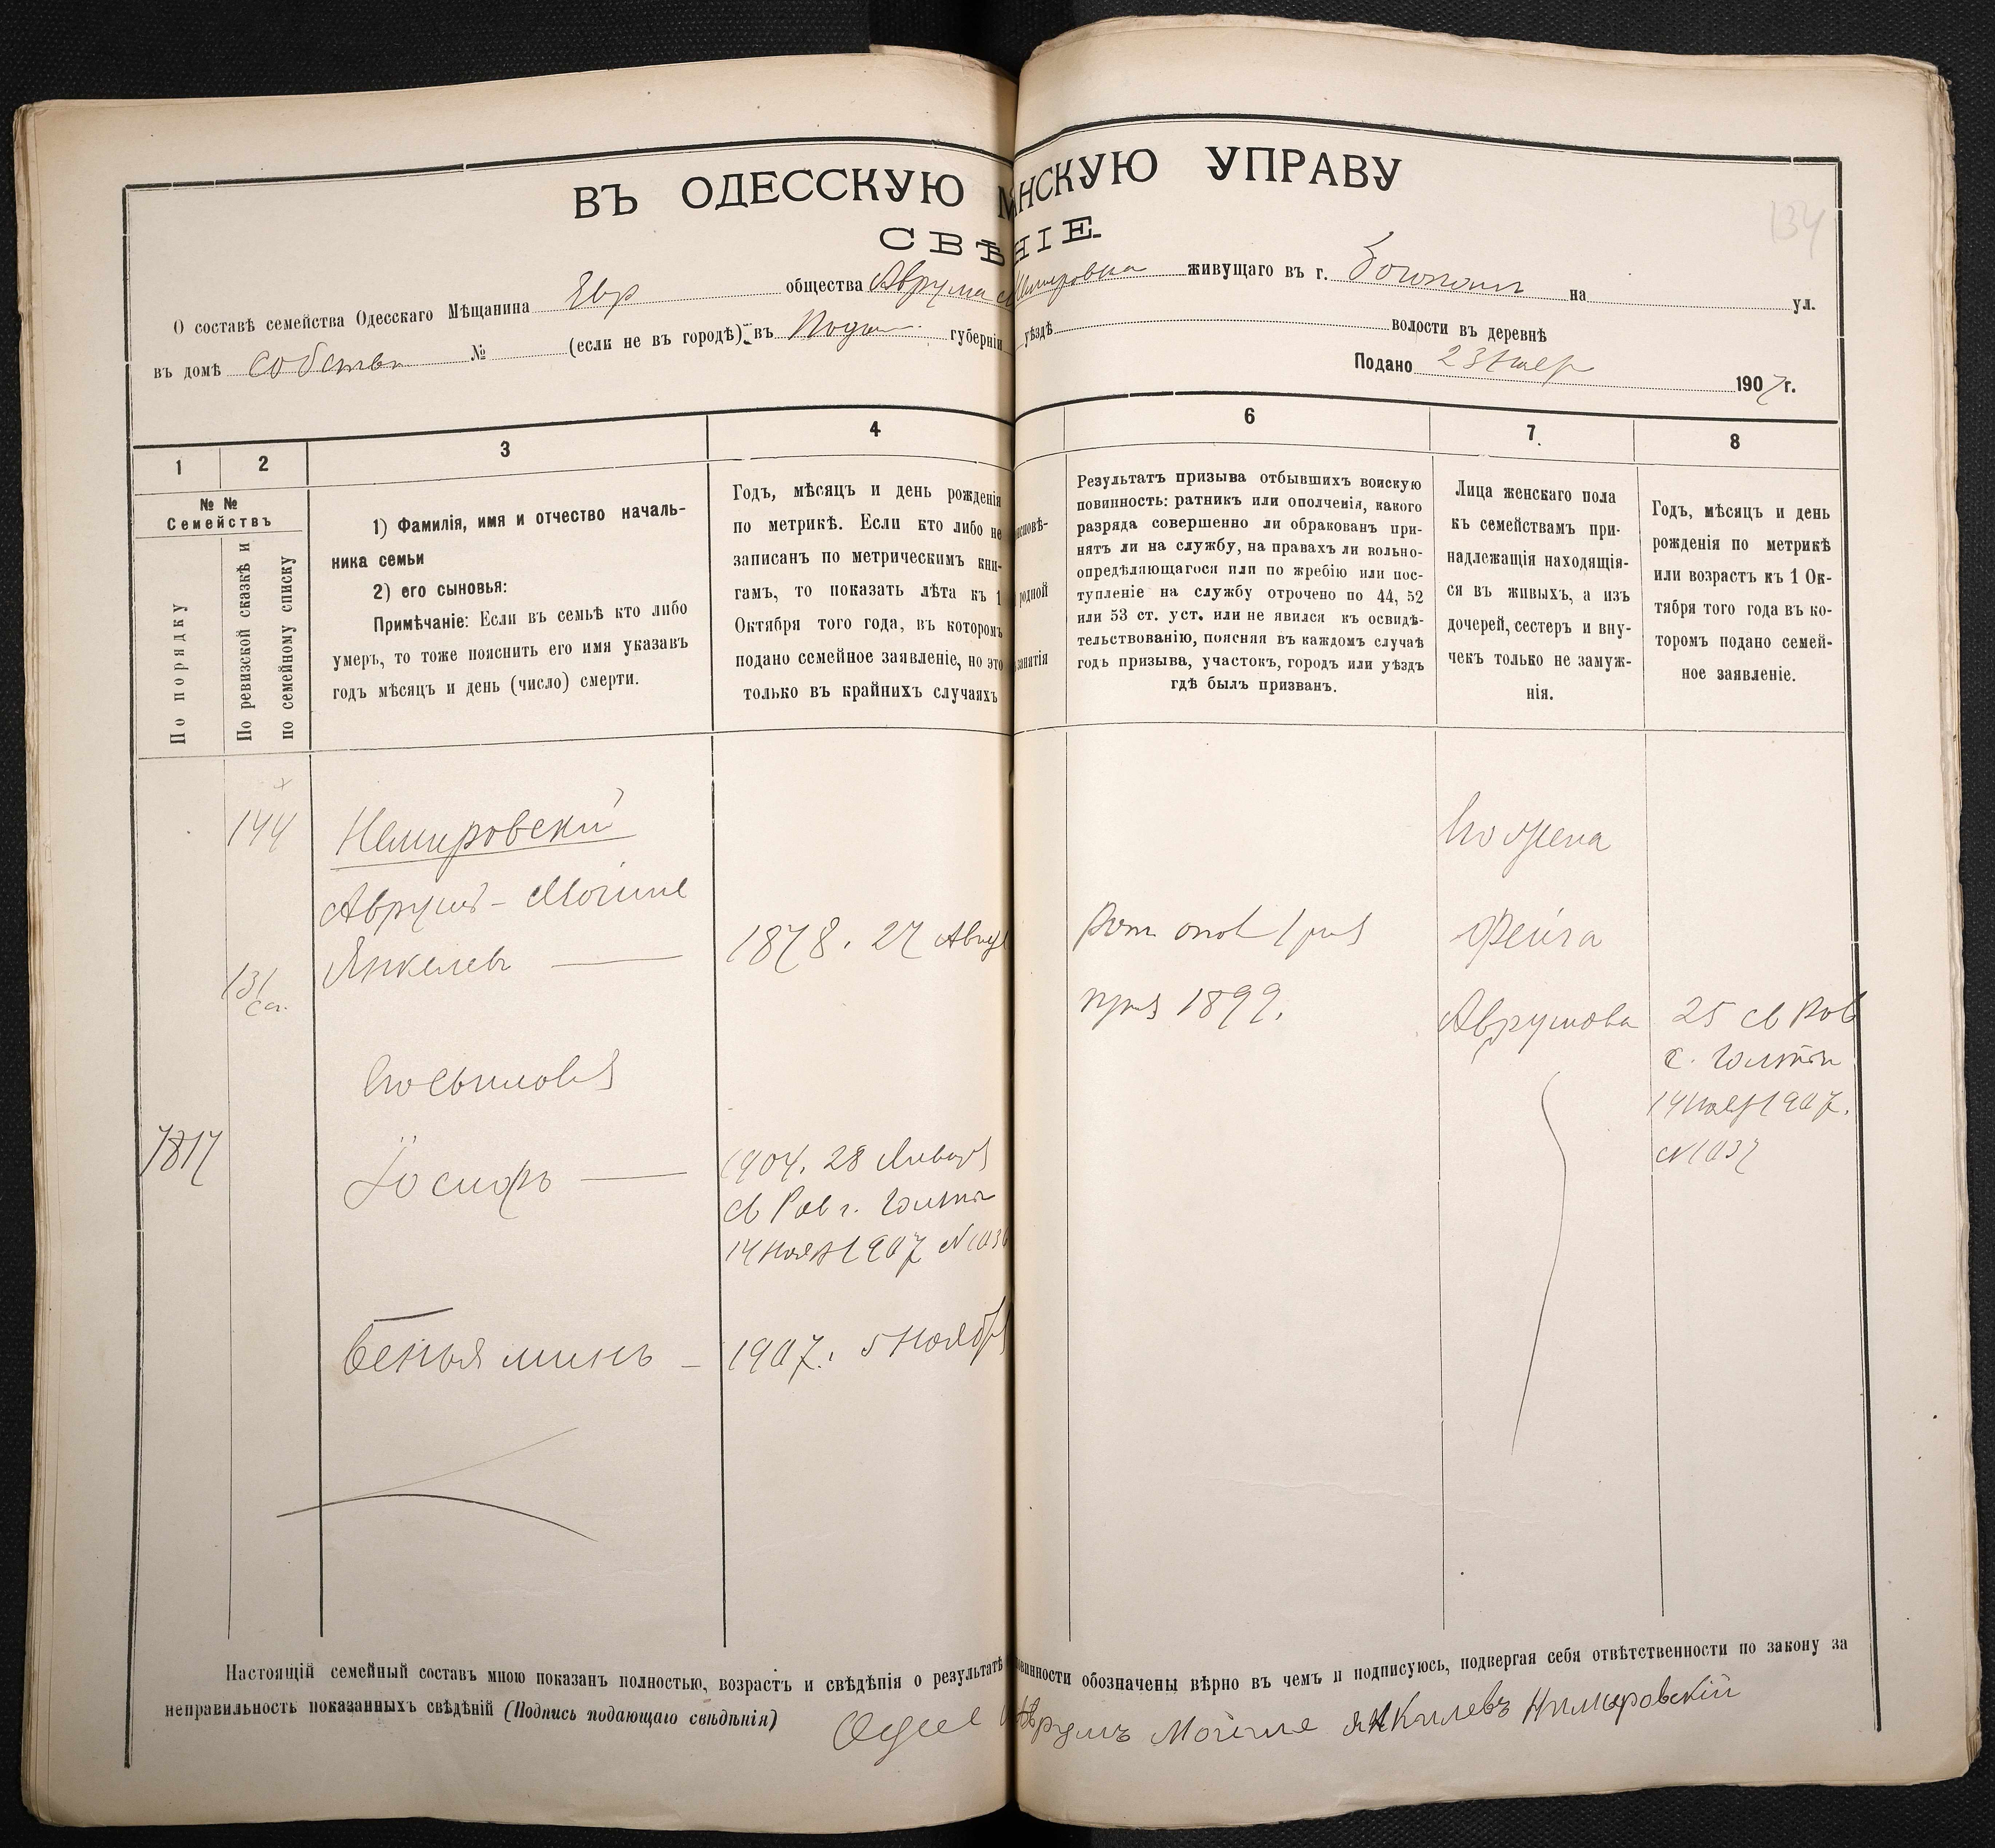 134
ВЪ ОДЕССКУЮ М НСКУЮ УПРАВУ
СВѢ НІЕ
О составѣ семейства Одесскаго Мѣщанина Евр общества Аврума живущаго въ г. Богополь на ул.
въ домѣ собствен № (если не въ городѣ) въ Подол. губерніи уѣздѣ волости въ деревнѣ
Подано 23 Ноябр 1907 г.
1 2 3 4 6 7. 8
№ №
Семействъ
По порядку
По ревизской сказкѣ и
по семейному списку
1) Фамилія, имя и отчество началь-
ника семьи
2) его сыновья:
Примѣчаніе: Если въ семьѣ кто либо
умеръ, то тоже пояснить его имя указавъ
годъ мѣсяцъ и день (число) смерти.
Годъ, мѣсяцъ и день рожденія
по метрикѣ. Если кто либо не
записанъ по метрическимъ кни-
гамъ, то показать лѣта къ 1
Октября того года, въ которомъ
подано семейное заявленіе, но это
только въ крайнихъ случаяхъ
исповѣ-
родной
занятія
Результатъ призыва отбывшихъ воискую
повинность: ратникъ или ополченія, какого
разряда совершенно ли обракованъ при-
нятъ ли на службу, на правахъ ли вольно-
опредѣляющагося или по жребію или пос-
тупленіе на службу отрочено по 44, 52
или 53 ст. уст. или не явился къ освидѣ-
тельствованію, поясняя въ каждомъ случаѣ
годъ призыва, участокъ, городъ или уѣздъ
гдѣ былъ призванъ.
Лица женскаго пола
къ семействамъ при-
надлежащія находящія-
ся въ живыхъ, а изъ
дочерей, сестеръ и вну-
чекъ только не замуж-
нія.
Годъ, мѣсяцъ и день
рожденія по метрикѣ
или возрастъ къ 1 Ок-
тября того года въ ко-
торомъ подано семей-
ное заявленіе.
144 Немировскій
Аврумъ-Мойше
Янкелевъ — 1878. 27 Авгус
131
Его сыновья
7817 Іосифъ — 1904. 28 Января
св Рав г. Голта
14 Нояб 1907 №1036
Беньяминъ — 1907. 5 Ноября
Рат опол 1 раз
приз 1899.
Его жена
Фейга
Аврумова
25 св Рав
г. Голты
14 Нояб 1907.
№1037
Настоящій семейный составъ мною показанъ полностью, возрастъ и свѣдѣнія о результатѣ винности обозначены вѣрно въ чемъ и подписуюсь, подвергая себя отвѣтственности по закону за
неправильность показанныхъ свѣдѣній (Подпись подающаго свѣдѣнія)
Аврумъ Мойше Янкилевъ Нимировскій